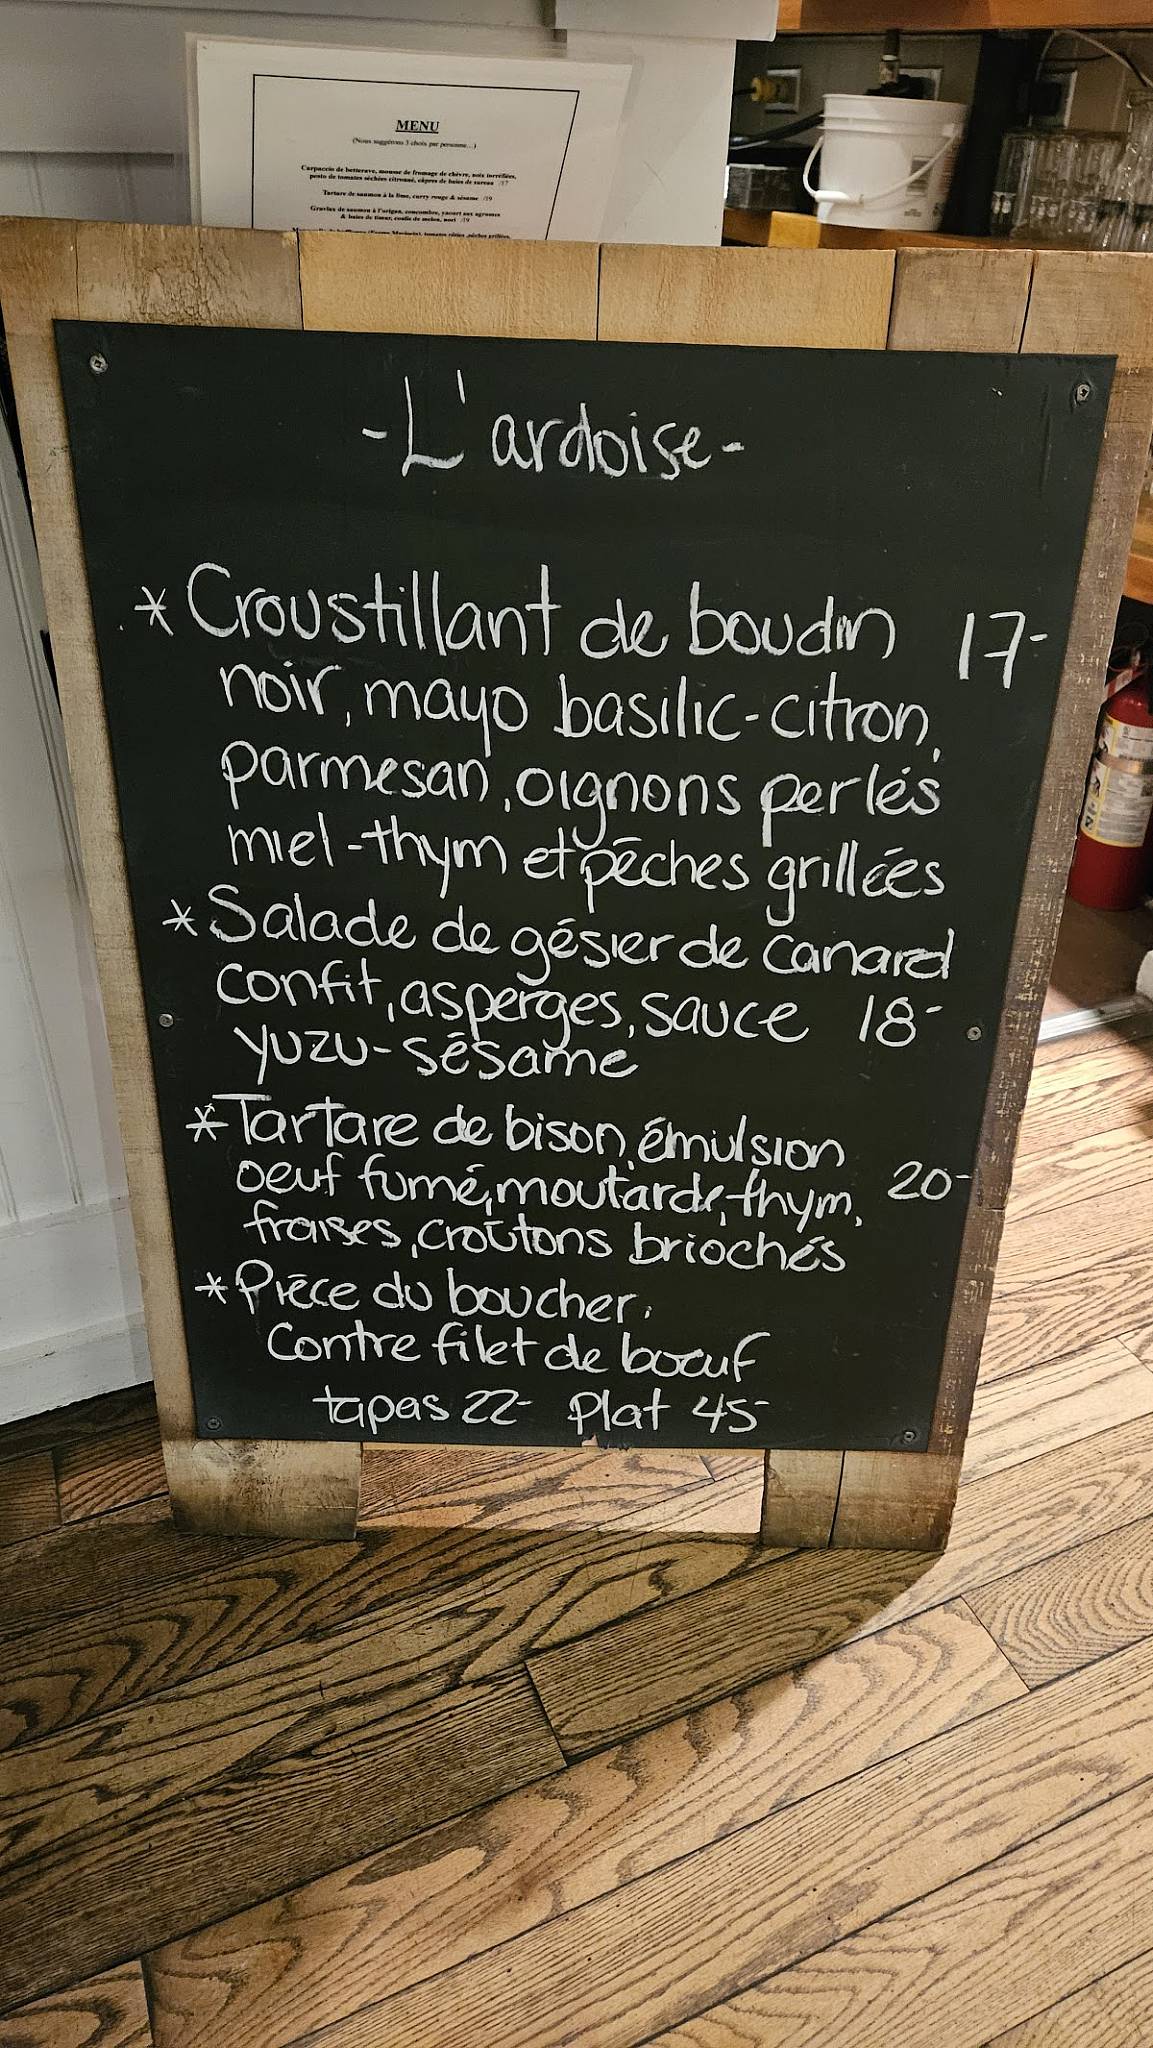 MENU
(Nous suggérons 3 choix par personne...)
Carpaccio de betterave, mousse de fromage de chèvre, noix torréfiées,
pesto de tomates séchées citronné, câpres de baies de sureau /17
Tartare de saumon à la lime, curry rouge & sésame /19
Gravlax de saumon à l'origan, concombre, yaourt aux agrumes
& baies de timur, coulis de melon, nori /19
-L'ardoise-
* Croustillant de boudin 17-
noir, mayo basilic-citron,
parmesan, oignons perlés
miel-thym et pêches grillées
* Salade de gésier de canard
confit, asperges, sauce 18-
yuzu-sésame
* Tartare de bison, émulsion
oeuf fumé, moutarde, thym, 20-
fraises, croûtons briochés
* Pièce du boucher.
Contre filet de boeuf
tapas 22- Plat 45-